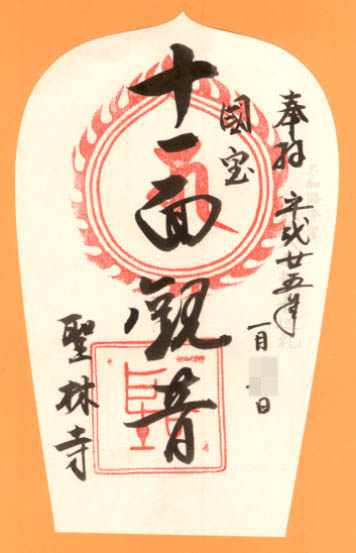 奉拝 平成廿五年
一月 日
國宝
十一面観音
聖林寺